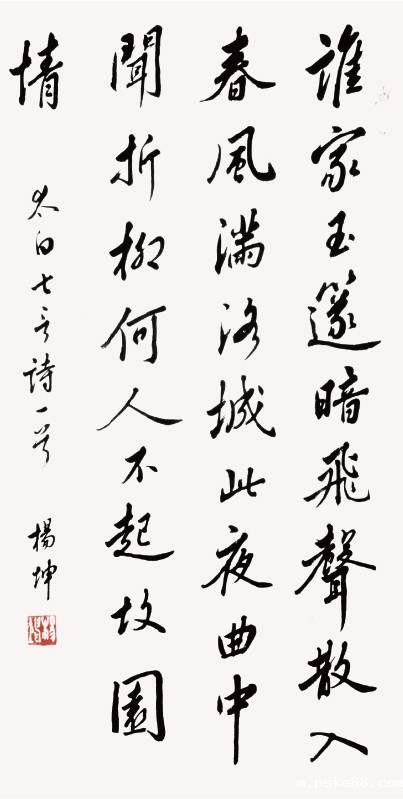 誰家玉篴暗飛聲散入
春風滿洛城此夜曲中
聞折柳何人不起故園
情
太白七言詩一首 楊坤
m.pske88.com